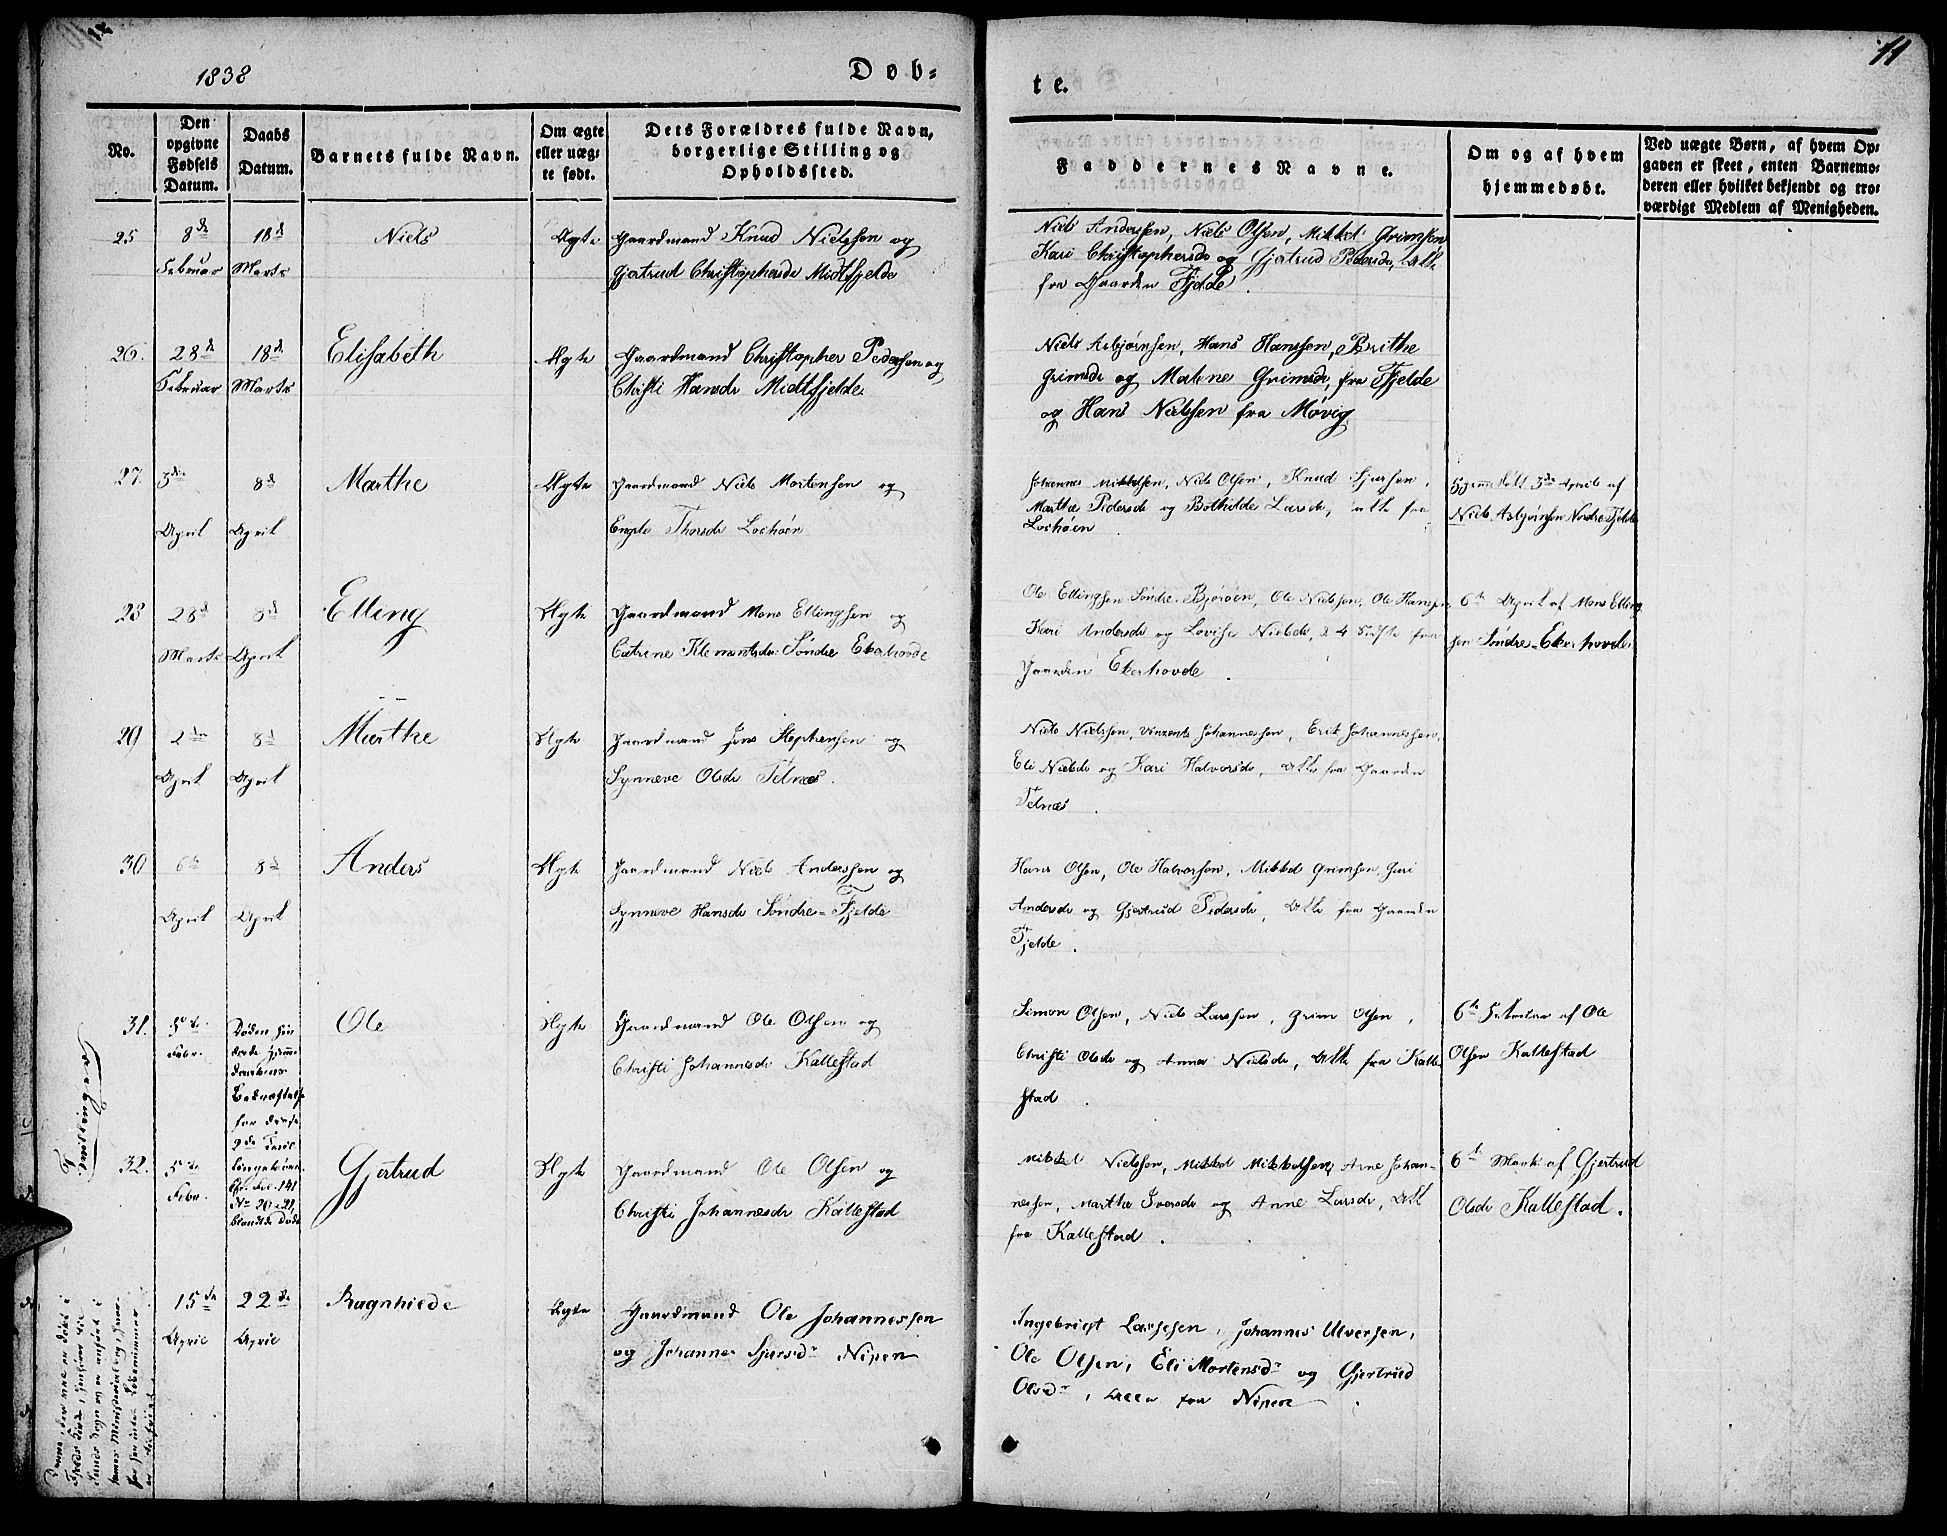 1838
Døb=
te.
11
No.
Den opgivne Fødsels Datum.
Daabs Datum.
Barnets fulde Navn.
Om ægte eller uæg= te født.
Dets Forældres fulde Navn, borgerlige Stilling og Opholdssted.
Faddernes Navne.
Om og af hvem hjemmedøbt.
Ved uægte Børn, af hvem Op= gaven er skeet, enten Barnemo= deren eller hvilket bekjendt og tro= værdigt Medlem af Menigheden.
25 8de Februar 18de Marts Niels Ægte
Gaardmand Knud Nielssen og
Gjertrud Christophersdr Midtfjelde
Niels Anderssen, Niels Olsen, Mikkel Grimsen
Kari Christophersdr og Gjertrud Pedersdr, Alle
fra Gaarden Fjelde.
26. 28de Februar 18de Marts Elisabeth Ægte
Gaardmand Christopher Pederssen og
Christi Hansdr Midtfjelde.
Niels Asbjørnsen, Hans Hanssen, Brithe
Grimsdr og Malene Grimsdr, fra Fjelde
og Hans Nielsen fra Møvig
27. 3die April 8de April Marthe Ægte
Gaardmand Niels Mortenssen og
Engle Thorsdr Lochøen
Johannes Mikkelsen, Niels Olsen, Knud Sjursen,
Marthe Pedersdr og Bothilde Larsdr, alle fra
Lochøen
Hjemmedøbt 3die April af
Niels Asbjørnsen Nordre Fjelde
28 28de Marts 8de April Elling Ægte
Gaardmand Mons Ellingsen og
Catrine Klementsdr Søndre Ekerhovde
Ole Ellingsen Søndre Bjørøen, Ole Nielsen, Ole Hanssen,
Kari Andersdr og Lovise Nielsdr, de 4 Sidste fra
Gaarden Ekerhovde.
6te April af Mons Elling
sen Søndre-Ekerhovde.
29 2den April 8de April Marthe Ægte
Gaardmand Jens Stephensen og
Synneve Olsdr Telnæs.
Niels Nielssen, Vinzents Johannessen, Erik Johannessen,
Eli Nielsdr og Kari Halvorsdr, Alle fra Gaarden
Telnæs.
30 6te April 8de April Anders Ægte
Gaardmand Niels Anderssen og
Synneve Hansdr Søndre-Fjelde
Hans Olsen, Ole Halvorsen, Mikkel Grimsen, Guri
Andersdr og Gjertrud Pedersdr, Alle fra Gaarden
Fjelde.
31. 5te Febr. Ole Ægte
Gaardmand Ole Olsen og
Christi Johannesdr Kallestad
Simon Olsen, Niels Larssen, Grim Olsen,
Christi Olsdr og Anna Nielsdr, Alle fra Kalle
stad.
6te Februar af Ole
Olsen Kallestad
Døden hin
drede Hjemme
daabens
Bekræftelse
for disse
2de Tvil
lingebørn
Cfr. Fol. 141
No 20 & 21,
blandt de Døde
Tvillinger.
32. 5te Febr. Gjertrud Ægte
Gaardmand Ole Olsen og
Christi Johannesdr Kallestad
Mikkel Nielssen, Mikkel Mikkelsen, Arne Johan-
nessen, Marthe Iversdr og Anne Larsdr, Alle
fra Kallestad.
6te Marts af Gjertrud
Olsdr Kallestad.
15de April 22de April Ragnhilde Ægte
Gaardmand Ole Johannessen
og Johanne Sjursdr Nipen
Ingebrigt Larssen, Johannes Ulversen,
Ole Olsen, Eli Mortensdr og Gjertrud
Olsdr, alle fra Nipen.